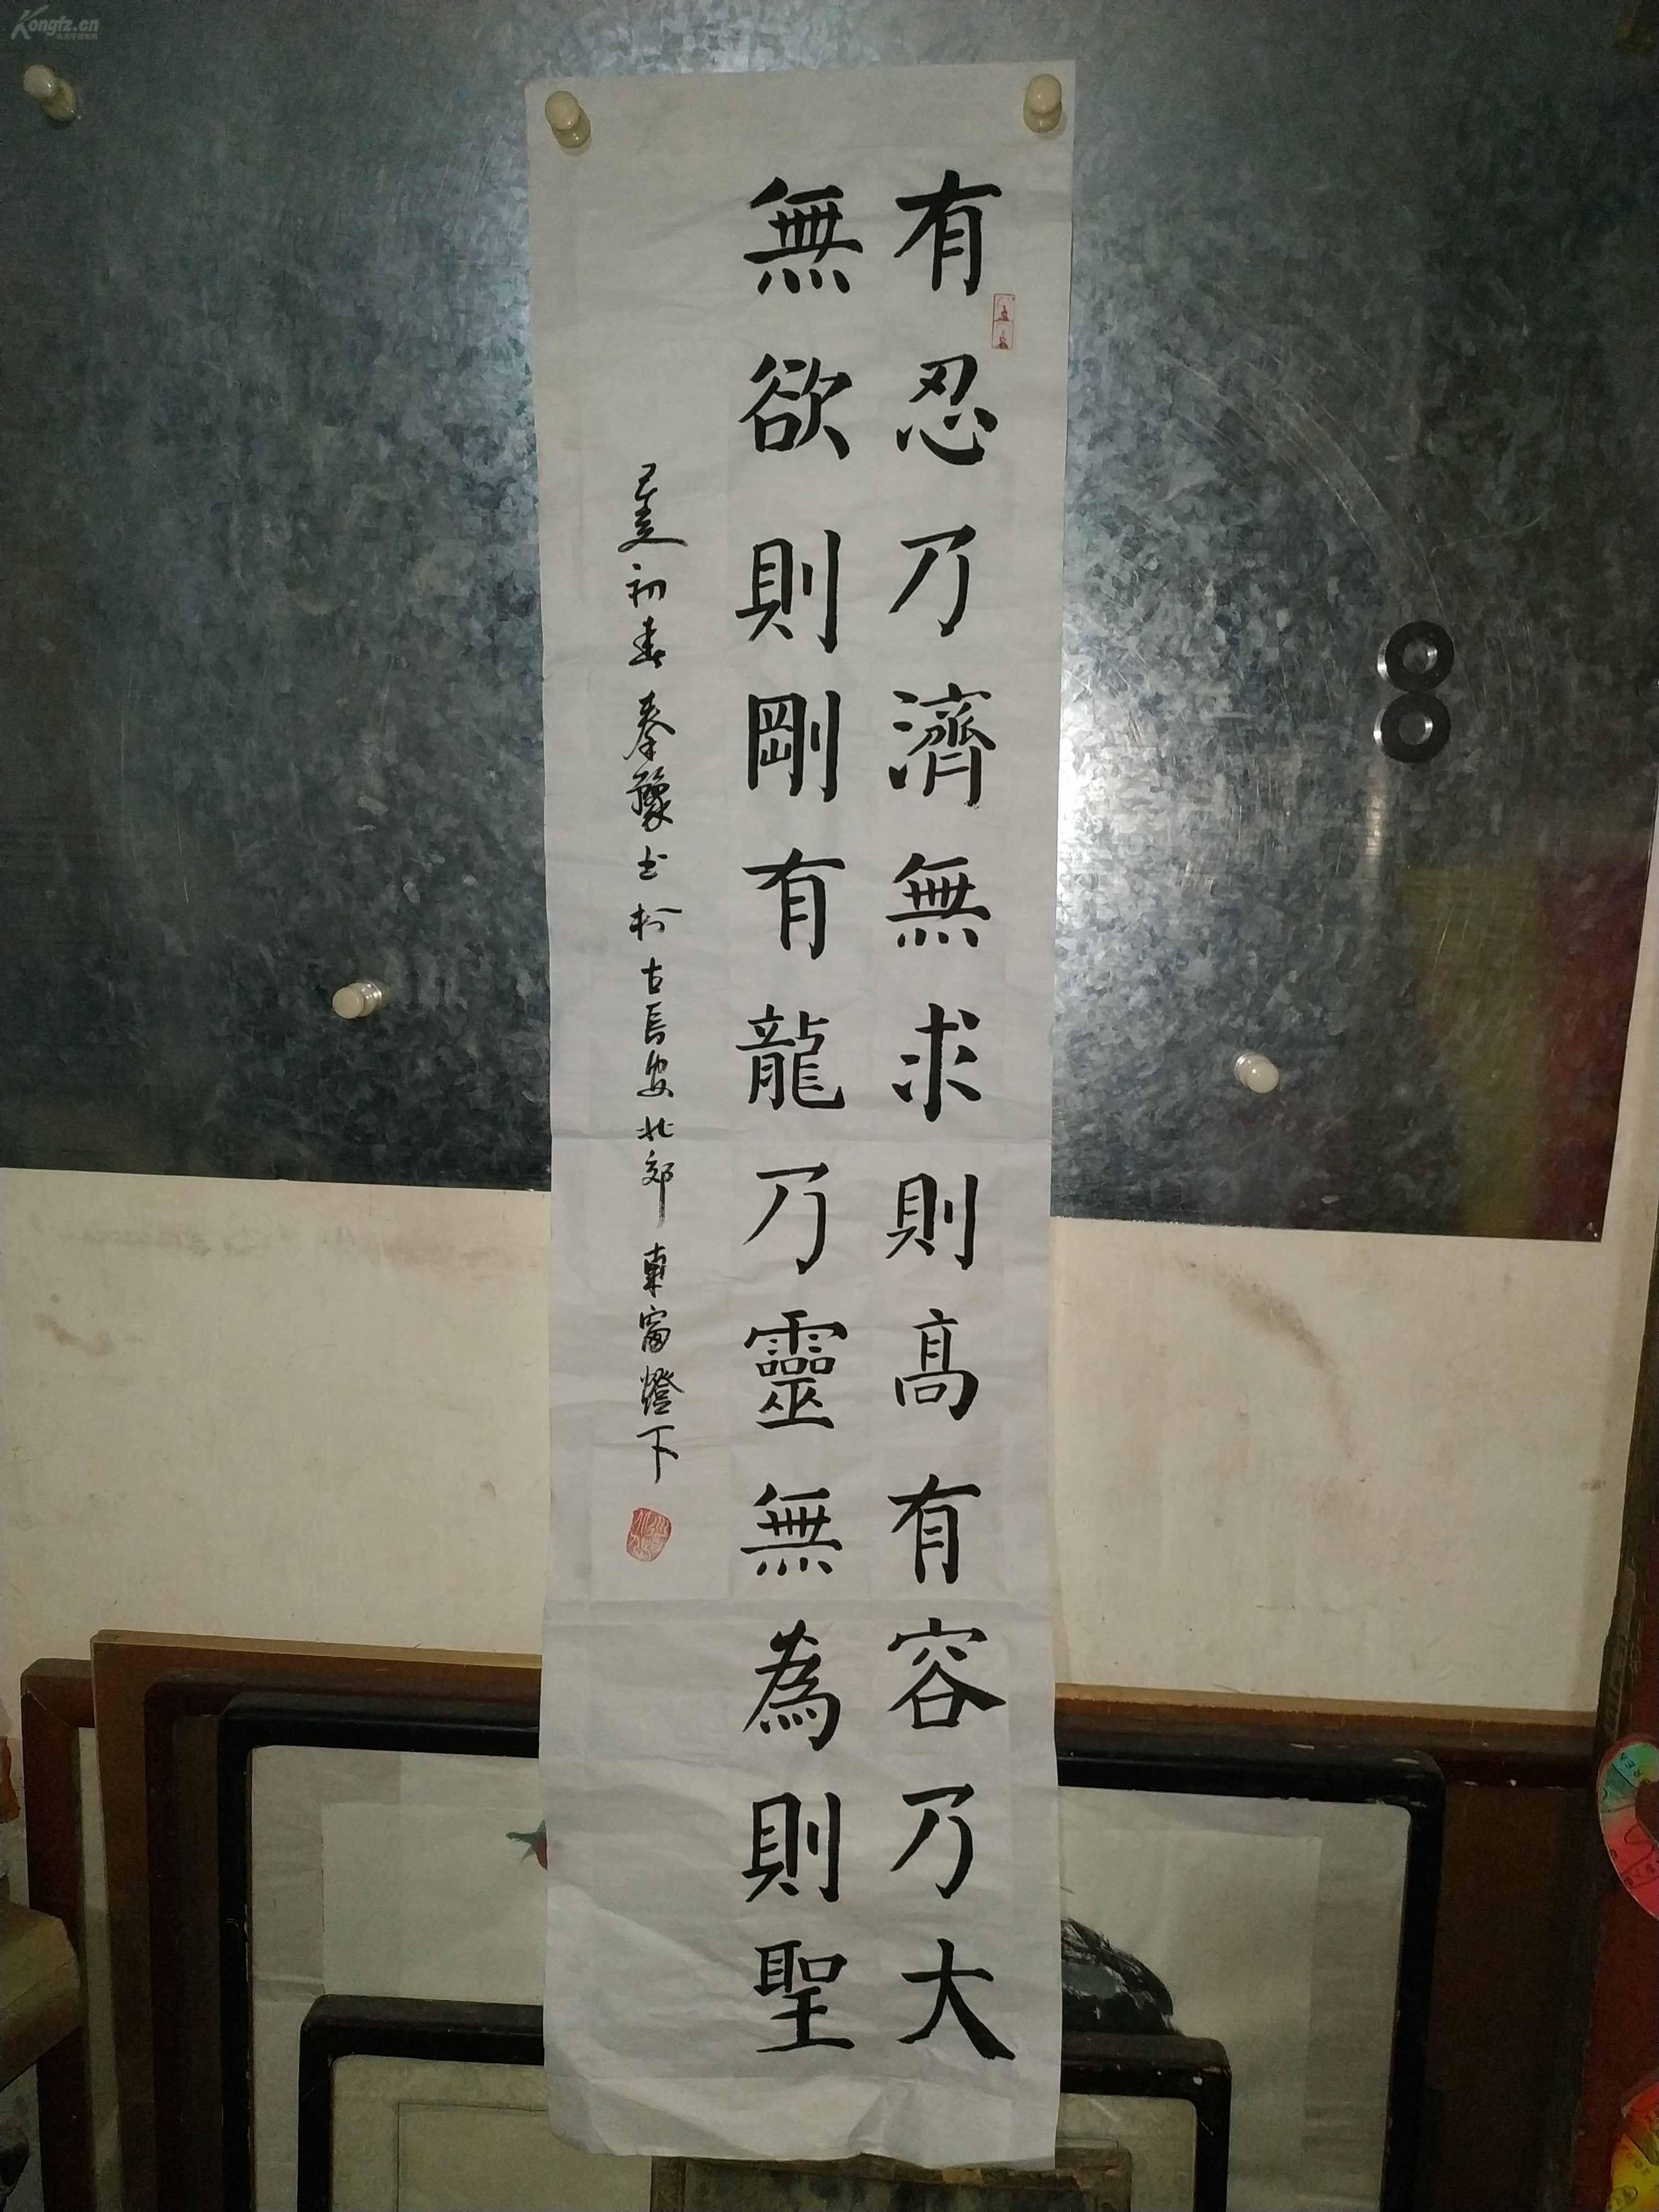 有忍乃濟無求則高有容乃大
無欲則剛有龍乃靈無為則聖
初春秦豫书於古長安北郊東窗燈下
Kongfz.cn